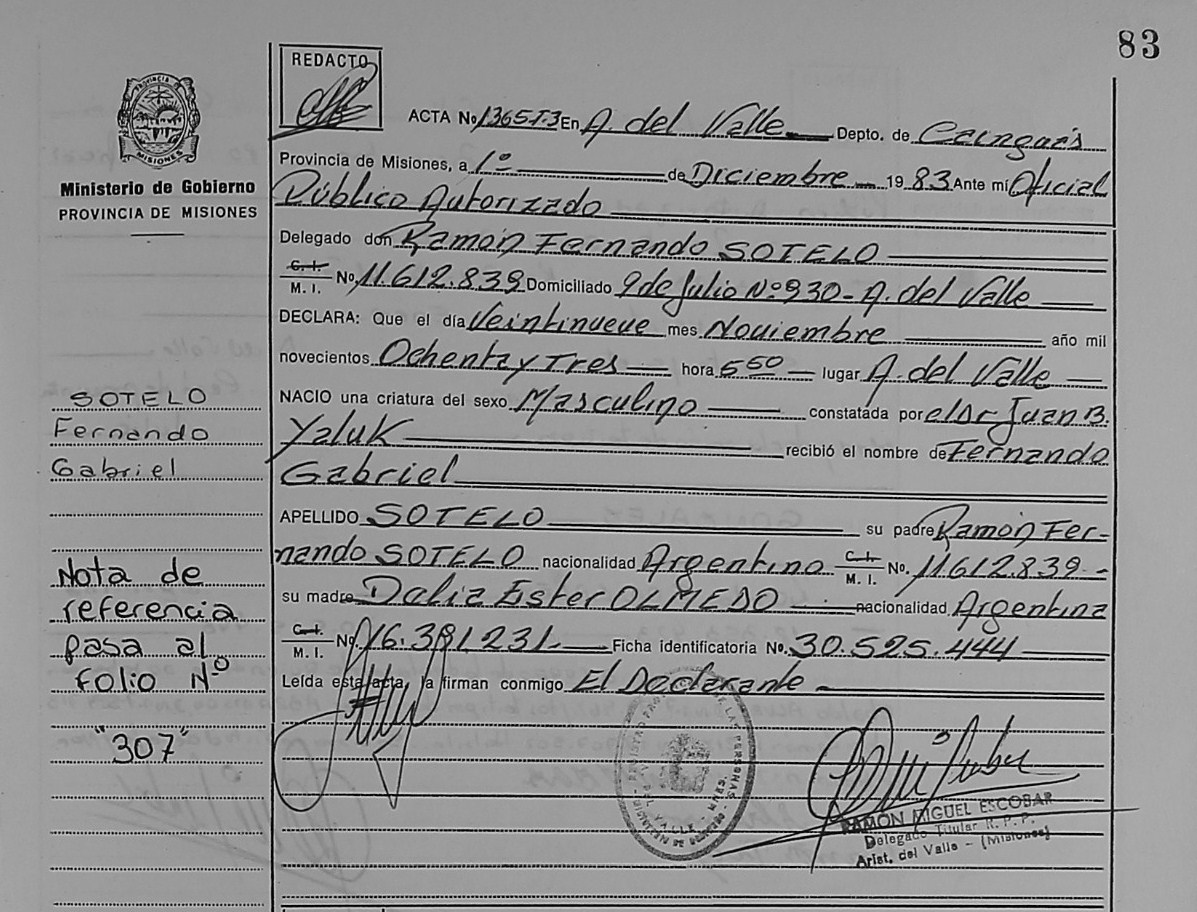 83
REDACTO
PROVINCIA DE
MISIONES
Ministerio de Gobierno
PROVINCIA DE MISIONES
ACTA No 1365T3 En A. del Valle Depto. de Cainguás
Provincia de Misiones, a 1º de Diciembre 1983 Ante mí Oficial
Público Autorizado
Delegado don Ramón Fernando SOTELO
C. I.
M. I. No. 11.612.839 Domiciliado 9 de Julio Nº 930 - A. del Valle
DECLARA: Que el día Veintinueve mes Noviembre año mil
novecientos Ochenta y Tres hora 5 50 lugar A. del Valle
NACIO una criatura del sexo Masculino constatada por el Dr Juan B.
Yaluk recibió el nombre de Fernando
Gabriel
APELLIDO SOTELO su padre Ramón Fer-
nando SOTELO nacionalidad Argentino C. I. M. I. No. 11.612.839-
su madre Dalia Ester OLMEDO nacionalidad Argentina
C. I.
M. I. No. 16.391.231.- Ficha identificatoria No. 30.525.444
Leída esta acta, la firman conmigo El Declarante -
SOTELO
Fernando
Gabriel
Nota de
referencia
pasa al
Folio Nº
"307"
RAMON MIGUEL ESCOBAR
Delegado Titular R. P. P.
Arist. del Valle - (Misiones)